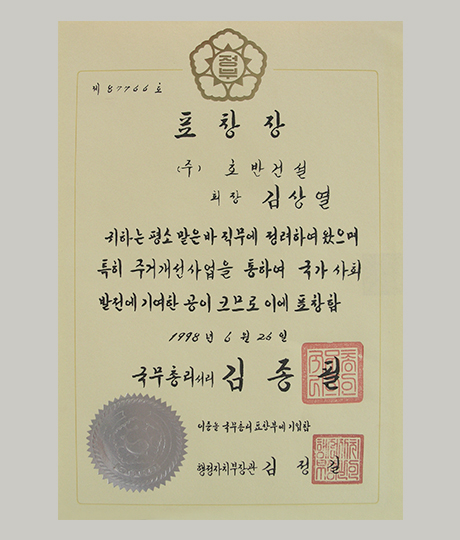 정부
제 87766 호
표창장
(주) 호반건설
회장 김상열
귀하는 평소 맡은바 직무에 정려하여 왔으며
특히 주거개선사업을 통하여 국가 사회
발전에 기여한 공이 크므로 이에 표창함
1998 년 6 월 26 일
국무총리서리 김종필
이 증을 국무총리 표창부에 기입함
행정자치부장관 김정길